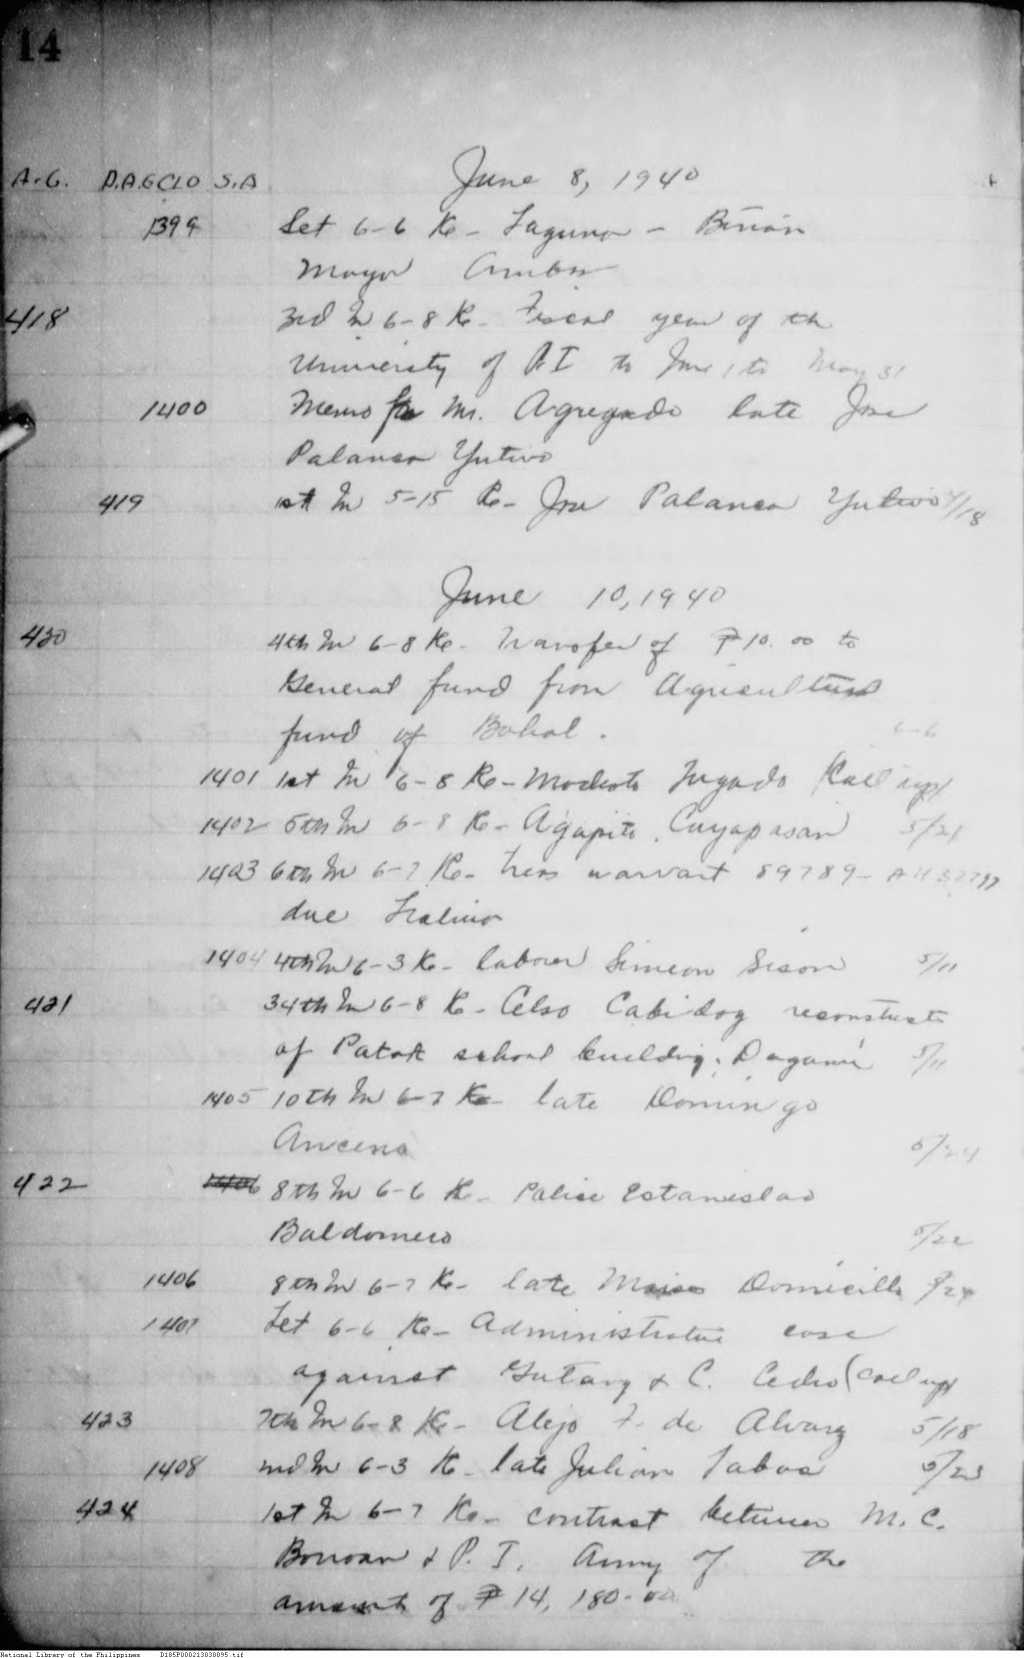 14
A.G. D.A.G CLO S.A June 8, 1940
1399 Let 6-6 Re- Laguna - Biñan
Mayor
418 3rd In 6-8 Re- Fiscal year of the
University of P.I to June 1 to May 31
1400 Memo for Mr. Agregado late Jose
Palanca Yutivo
419 1st In 5-15 Re- Jose Palanca Yutivo 4/18
June 10, 1940
420 4th In 6-8 Re- Transfer of ₱10.00 to
General fund from Agricultural
fund of Bohol. 6-6
1401 1st In 6-8 Re- Modesto Jugado (Call up)
1402 5th In 6-8 Re- Agapito Cayapasan 5/21
1403 6th In 6-7 Re- warrant 89789-
due
1404 4th In 6-3 Re- laborer Simeon Sison 5/11
421 34th In 6-8 Re- Celso Cabidog reconstruct
of Patok school building, Dagami 5/11
1405 10th In 6-7 Re- late Domingo
Anceno 5/24
422 1406 8th In 6-6 Re- Police Estanislao
Baldomero 5/22
1406 8th In 6-7 Re- late
1407 Let 6-6 Re- Administrative case
against Gutang & C. Cedro (Call up)
423 7th In 6-8 Re- Alejo F. de Alvarez 5/18
1408 2nd In 6-3 Re- late Julian Tabos 5/23
424 1st In 6-7 Re- contract between M.C.
& P.I. Army of the
amount of ₱14,180.00
National Library of the Philippines D185P000213838095.tif